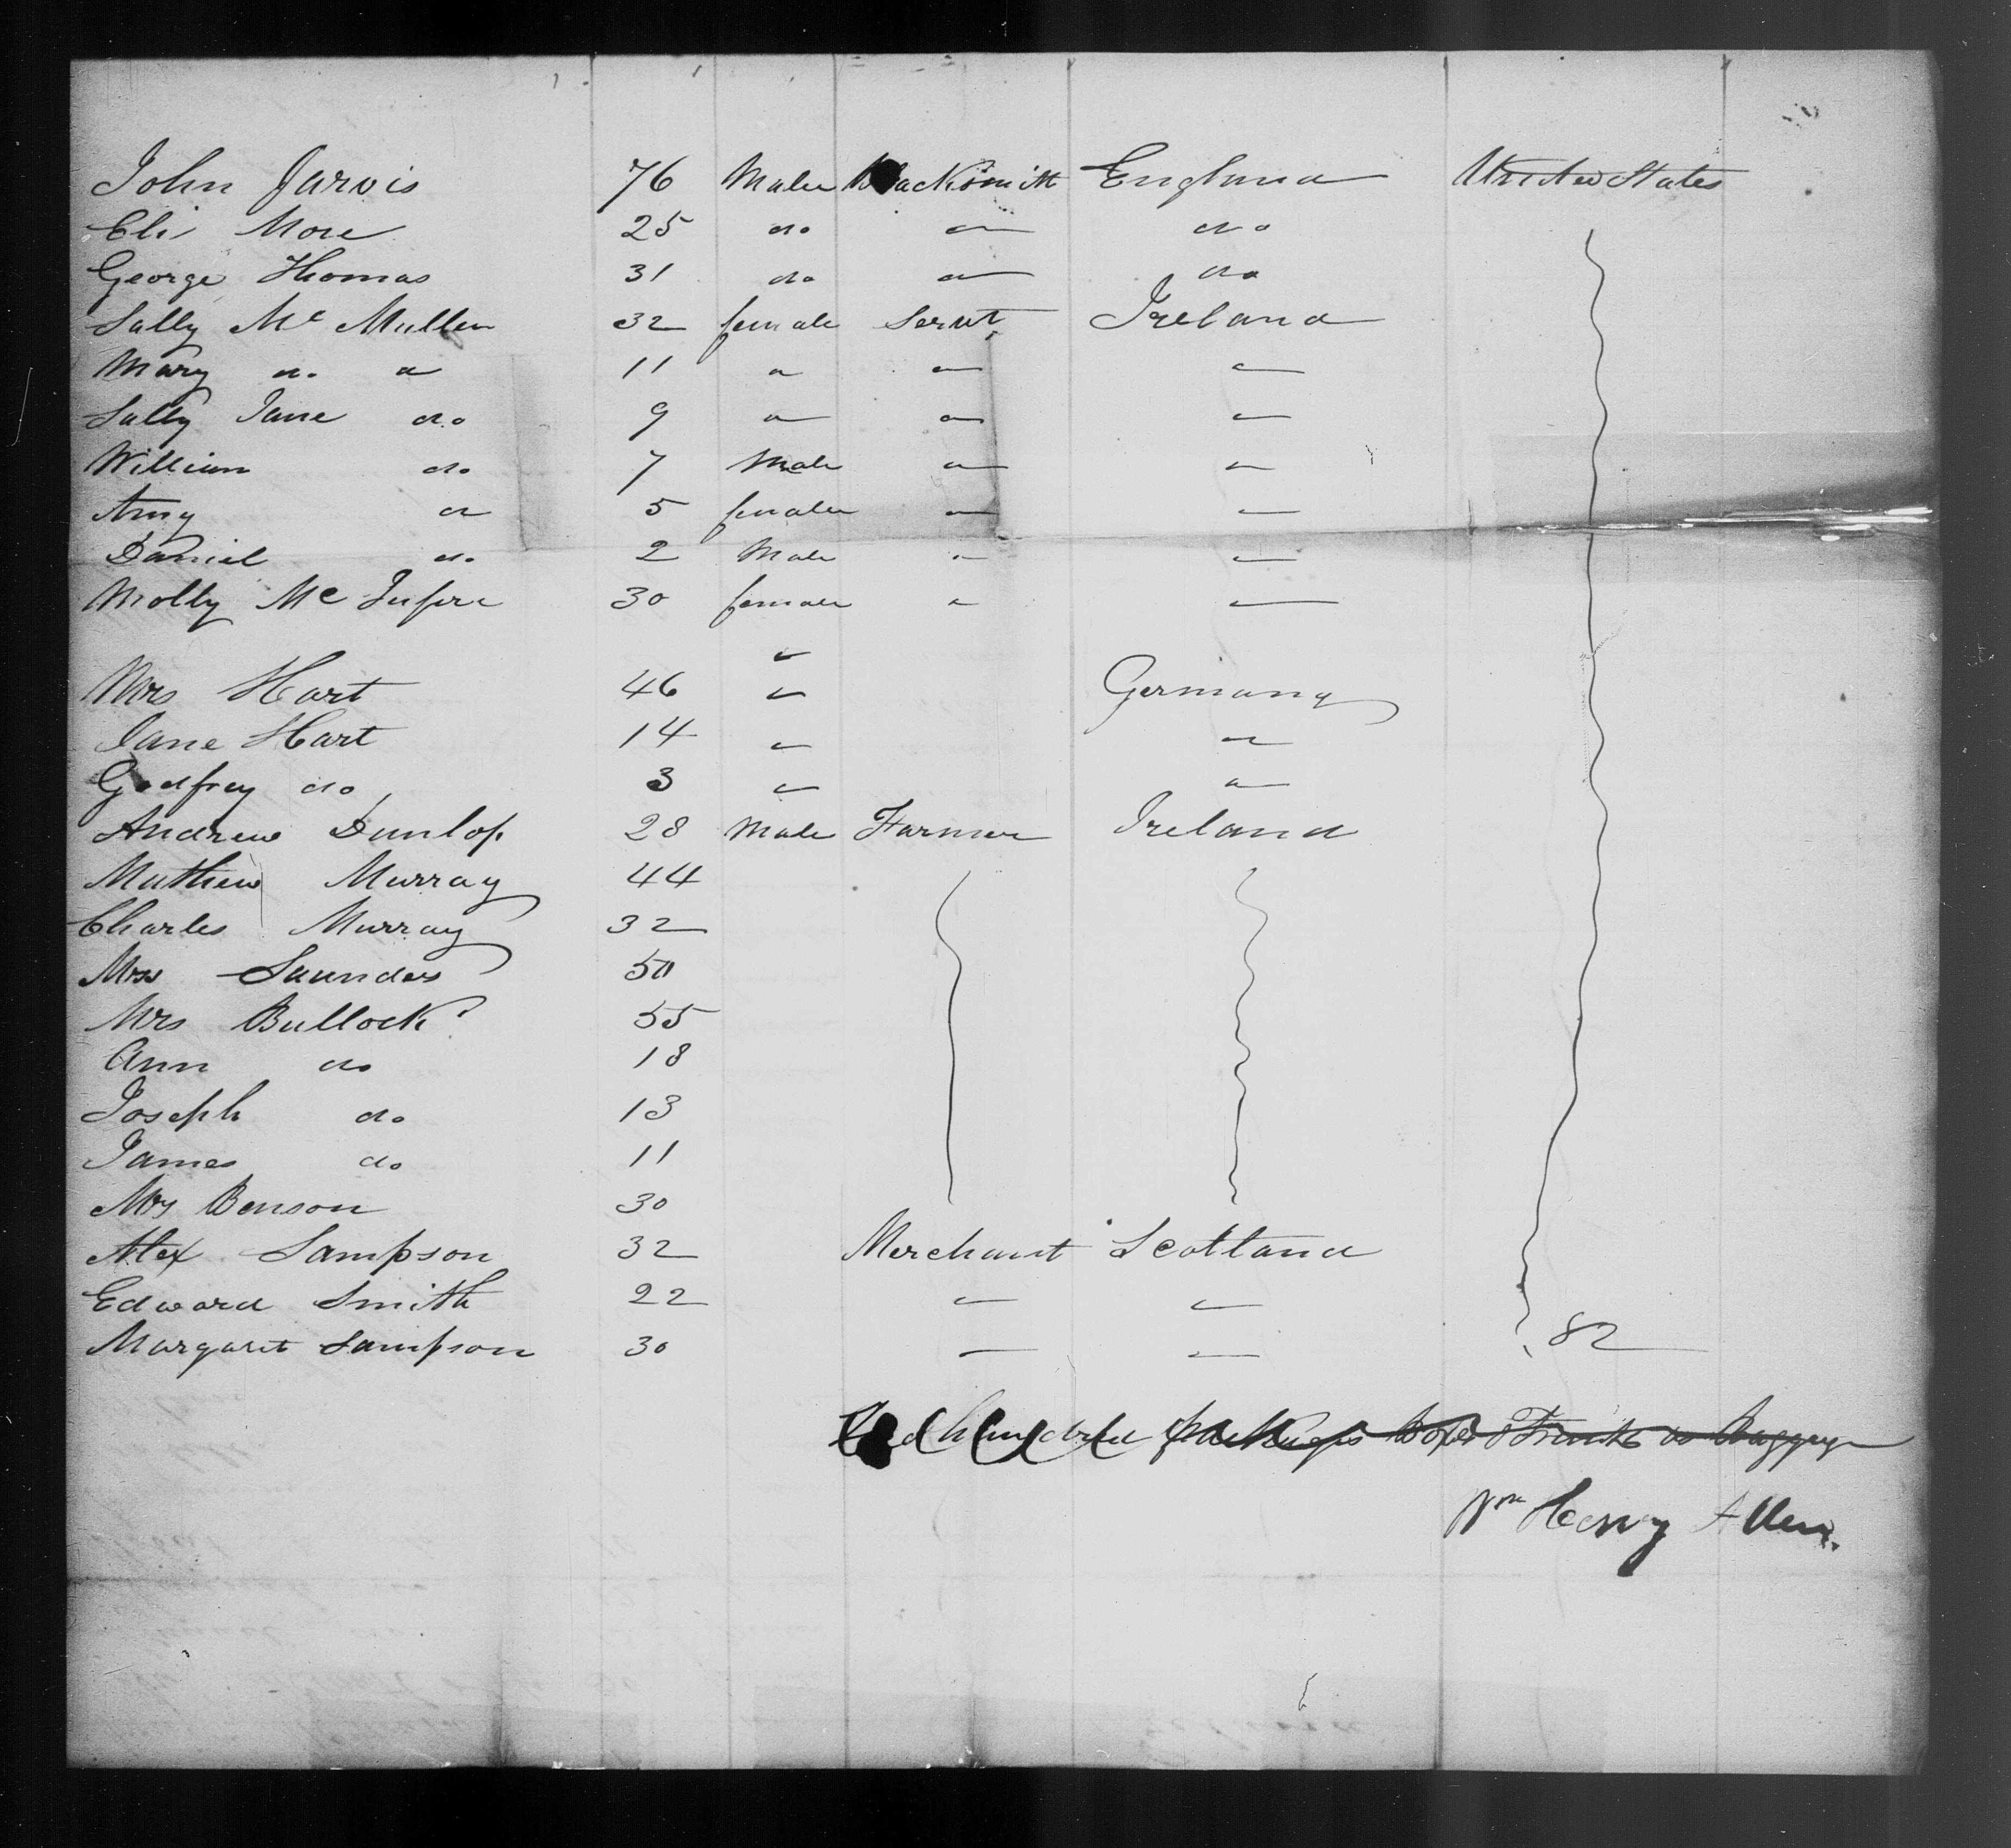 John Jarvis 76 Male Blacksmith England United States
Eli More 25 do " do
George Thomas 31 do " do
Sally Mc Mullen 32 female Servt Ireland
Mary do " 11 " " "
Sally Jane do 9 " " "
William do 7 Male " "
Amy " 5 female " "
Daniel do 2 Male " "
Molly Mc 30 female " "
"
Mrs Hart 46 " Germany
Jane Hart 14 " "
Godfrey do 3 " "
Andrew Dunlop 28 Male Farmer Ireland
Mathew Murray 44
Charles Murray 32
Mrs Saunders 50
Mrs Bullock 55
Ann do 18
Joseph do 13
James do 11
Mrs Benson 30
Alex Sampson 32 Merchant Scotland
Edward Smith 22 " "
Margaret Sampson 30 " " 82
hundred packages Boxes & Trunks as Baggage
Wm Henry Allen.